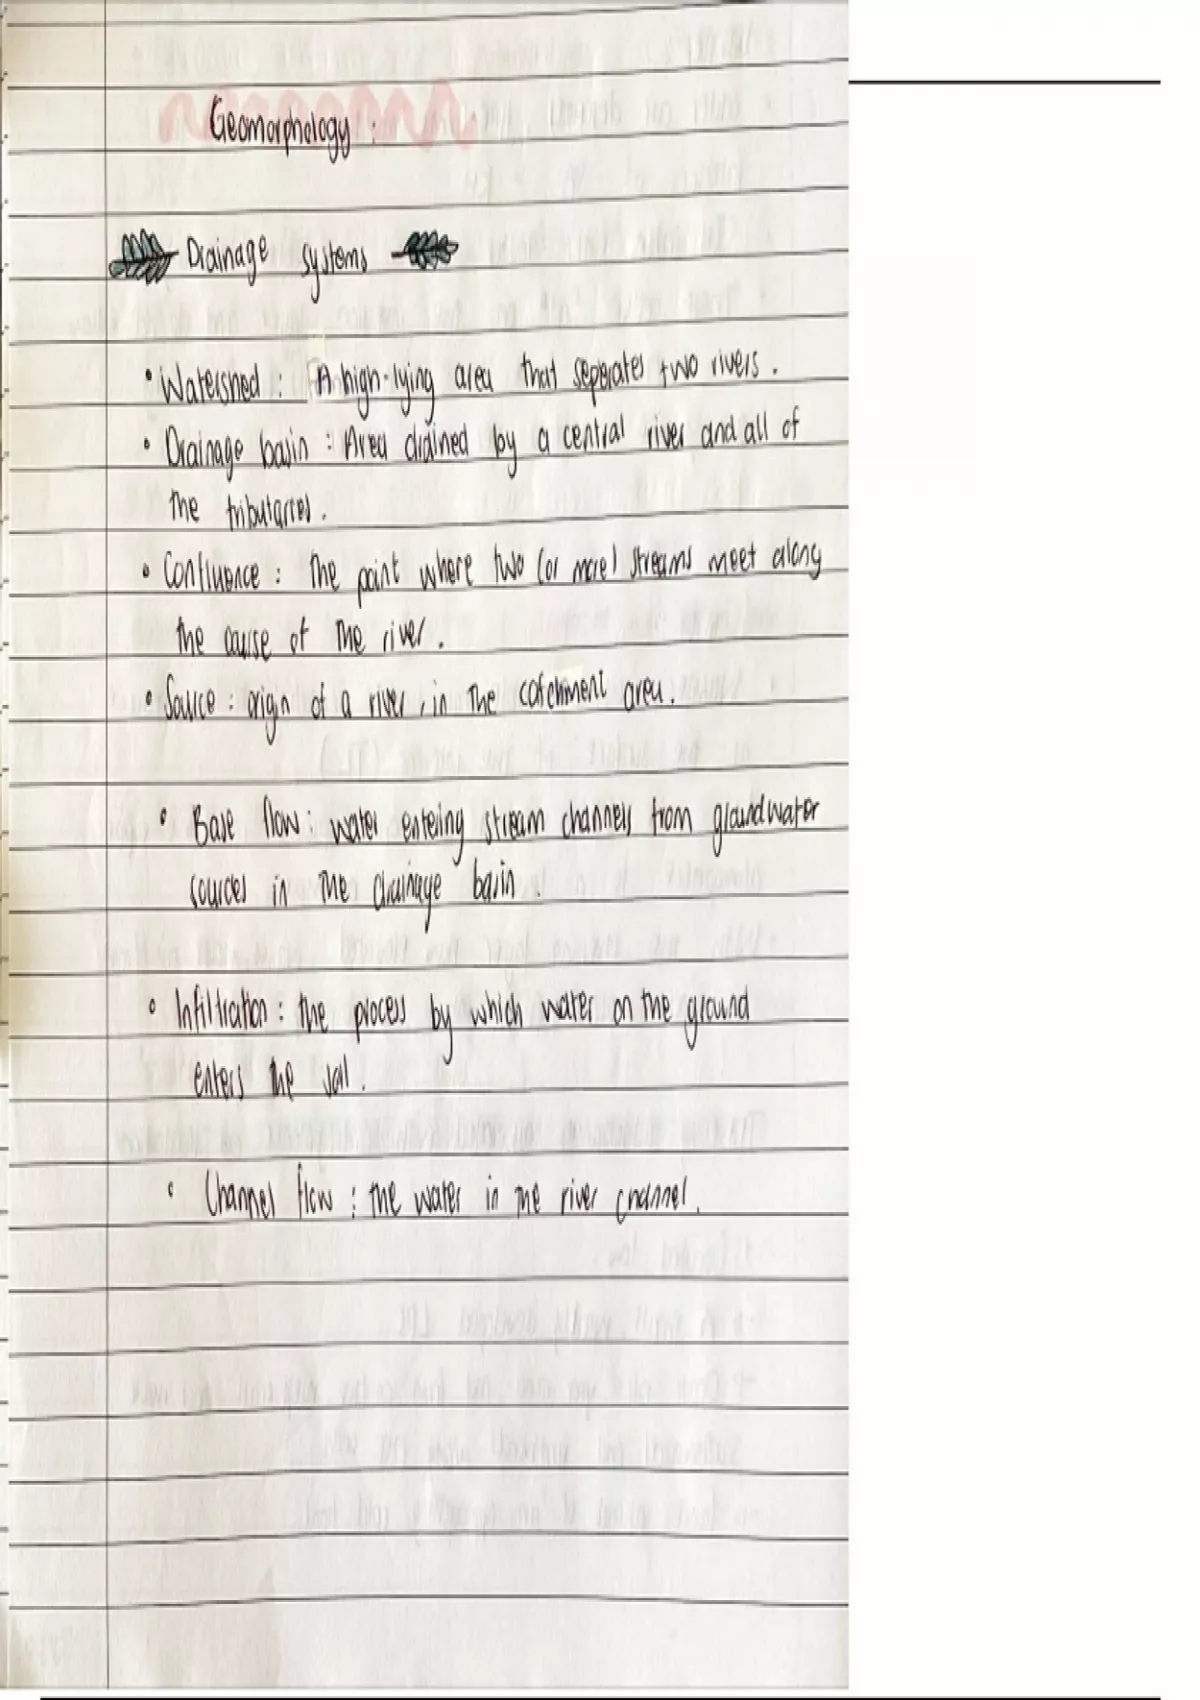 Geomorphology :
Drainage systems
• Watershed : A high-lying area that seperates two rivers.
• Drainage basin : Area drained by a central river and all of
the tributaries.
• Confluence : The point where two (or more) streams meet along
the course of the river.
• Source : origin of a river, in the catchment area.
• Base flow : water entering stream channels from groundwater
sources in the drainage basin.
• Infiltration : the process by which water on the ground
enters the soil.
• Channel flow : the water in the river channel.